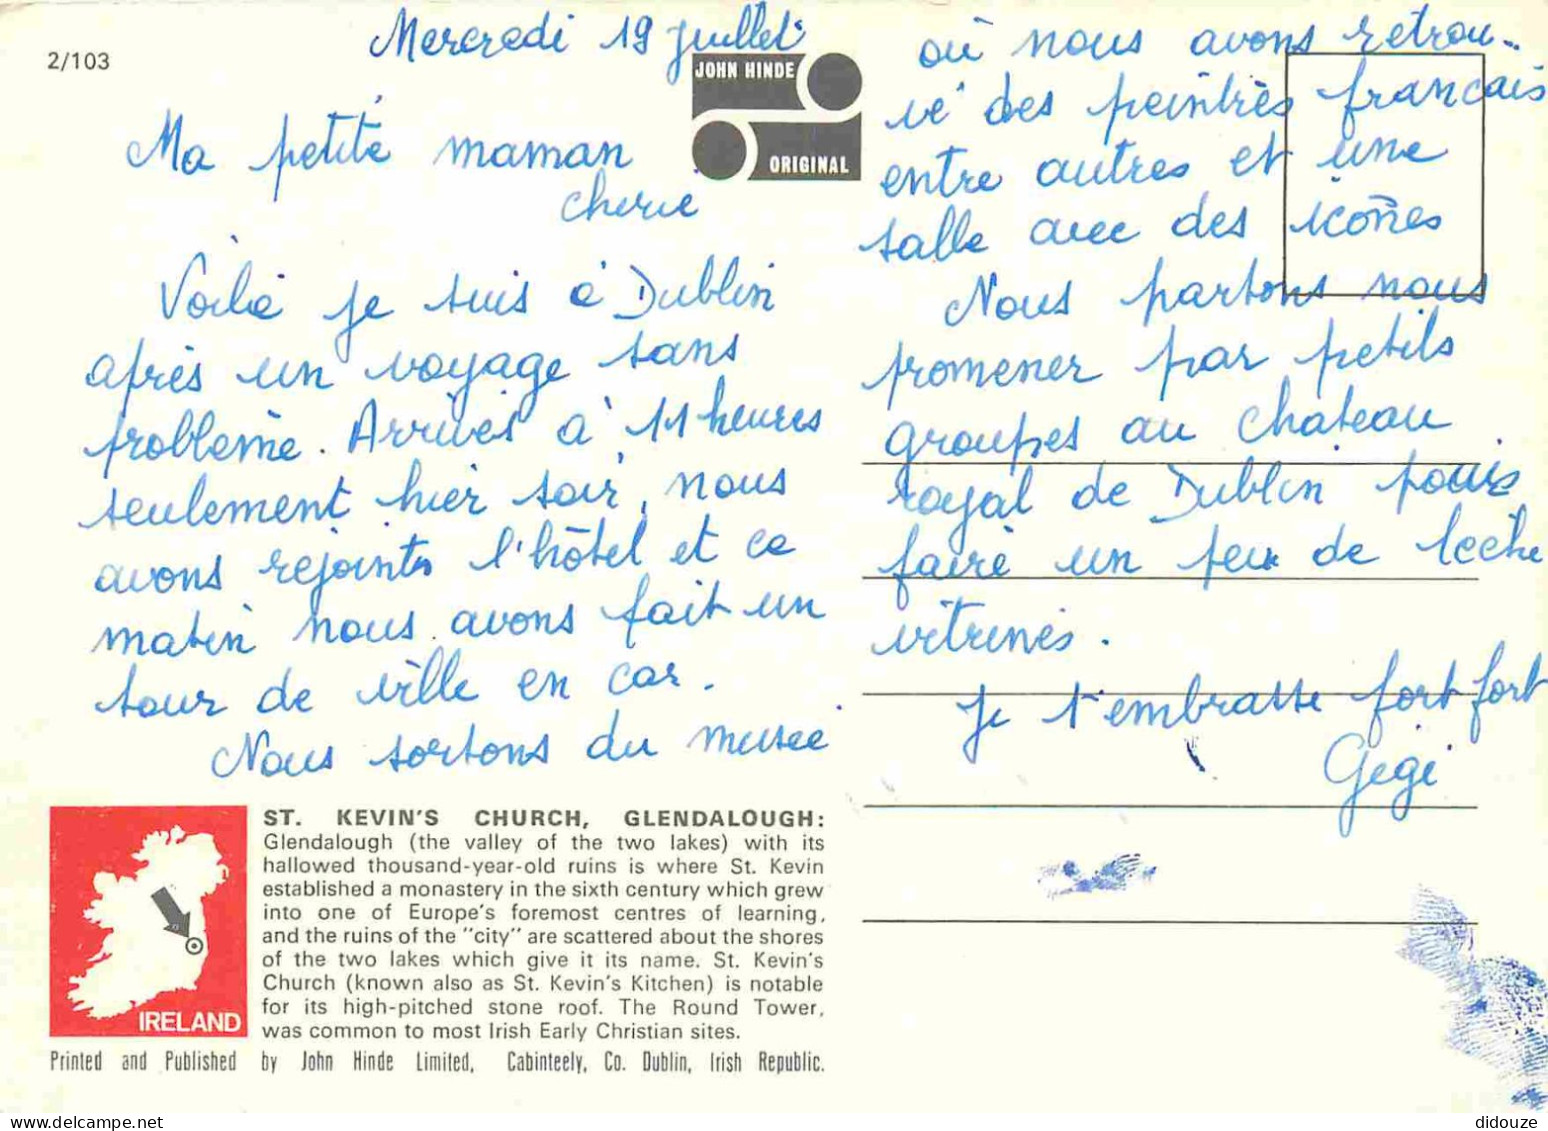 2/103
Mercredi 19 juillet
JOHN HINDE
ORIGINAL
Ma petite maman
cherie
Voilà je suis à Dublin
après un voyage sans
problème. Arrivés à 11 heures
seulement hier soir, nous
avons rejoint l'hôtel et ce
matin nous avons fait un
tour de ville en car.
Nous sortons du musée
où nous avons retrou-
vé des peintres francais
entre autres et une
salle avec des icônes
Nous partons nous
promener par petits
groupes au chateau
royal de Dublin puis
faire un peu de lèche
vitrines.
Je t'embrasse fort fort
Gégé
ST. KEVIN'S CHURCH, GLENDALOUGH:
Glendalough (the valley of the two lakes) with its
hallowed thousand-year-old ruins is where St. Kevin
established a monastery in the sixth century which grew
into one of Europe's foremost centres of learning,
and the ruins of the "city" are scattered about the shores
of the two lakes which give it its name. St. Kevin's
Church (known also as St. Kevin's Kitchen) is notable
for its high-pitched stone roof. The Round Tower,
was common to most Irish Early Christian sites.
IRELAND
Printed and Published by John Hinde Limited, Cabinteely, Co. Dublin, Irish Republic.
didouze